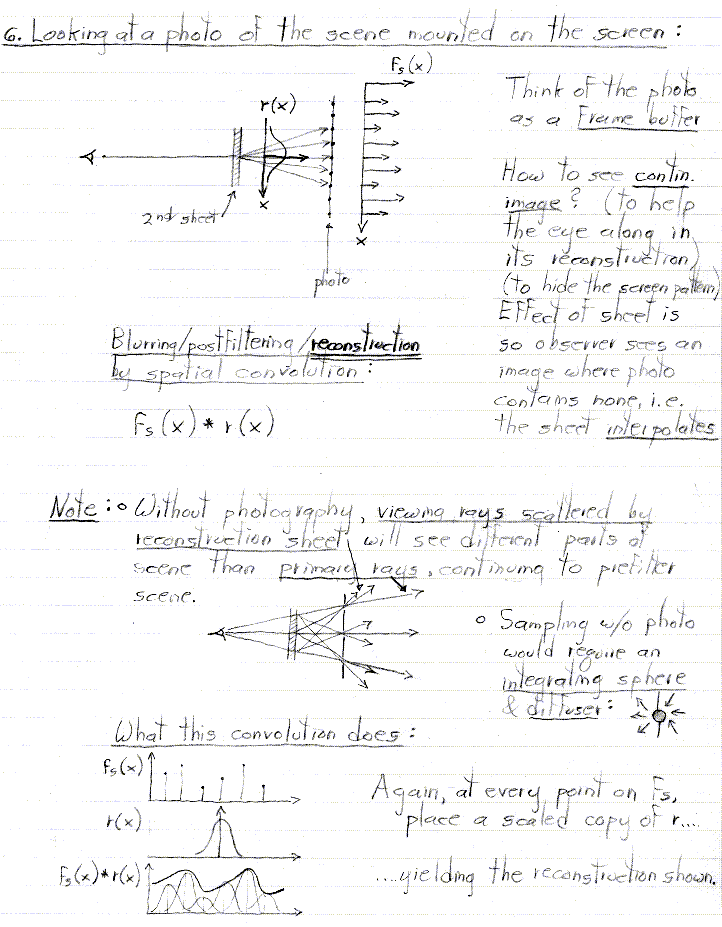 6. Looking at a photo of the scene mounted on the screen:
Fs(x)
r(x)
x
2nd sheet
x
photo
Think of the photo
as a frame buffer
How to see contin.
image? (to help
the eye along in
its reconstruction)
(to hide the screen pattern)
Effect of sheet is
so observer sees an
image where photo
contains none, i.e.
the sheet interpolates
Blurring/postfiltering/reconstruction
by spatial convolution:
Fs(x) * r(x)
Note: ∘ Without photography, viewing rays scattered by
reconstruction sheet will see different parts of
scene than primary rays, continuing to prefilter
scene.
∘ Sampling w/o photo
would require an
integrating sphere
& diffuser:
What this convolution does:
fs(x)
r(x)
Fs(x)*r(x)
Again, at every point on Fs,
place a scaled copy of r....
....yielding the reconstruction shown.